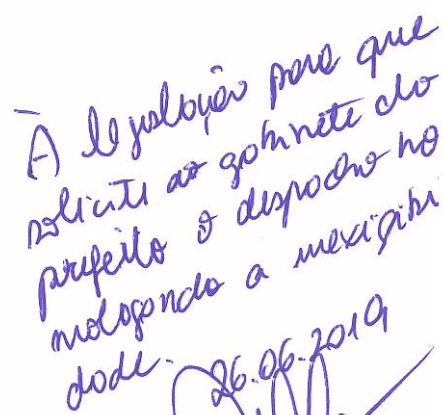 À legislação para que
solicite ao gabinete do
prefeito o despacho ho
mologando a inexigibi
dade.
26.06.2019